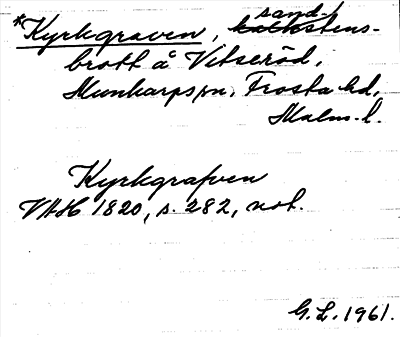 *Kyrkgraven, sand-
kalkstens-
brott å Vitseröd,
Munkarps sn, Frosta hd,
Malm. l.
Kyrkgrafven
VAH 1820, s. 282, not.
G. L. 1961.